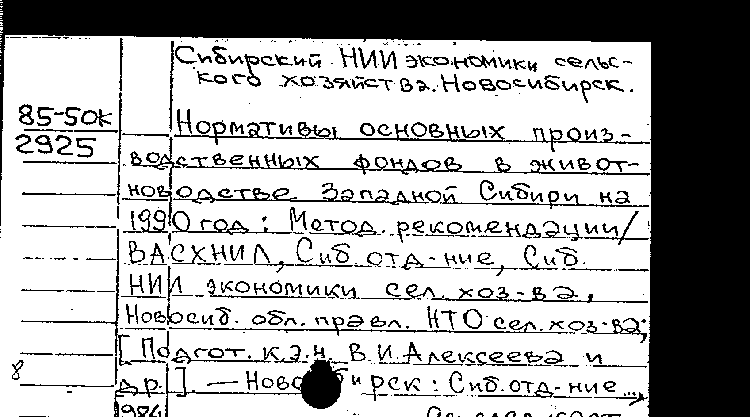 Сибирский НИИ экономики сельс-
кого хозяйства. Новосибирск.
85-50К
2925
Нормативы основных произ-
водственных фондов в живот-
новодстве Западной Сибири на
1990 год: Метод. рекомендации/
ВАСХНИЛ, Сиб. отд-ние, Сиб.
НИИ экономики сел. хоз-ва,
Новосиб. обл. правл. НТО сел. хоз-ва;
[Подгот. к.э.н. В.И. Алексеева и
8
др.]. — Новосибирск: Сиб. отд-ние...,
1984